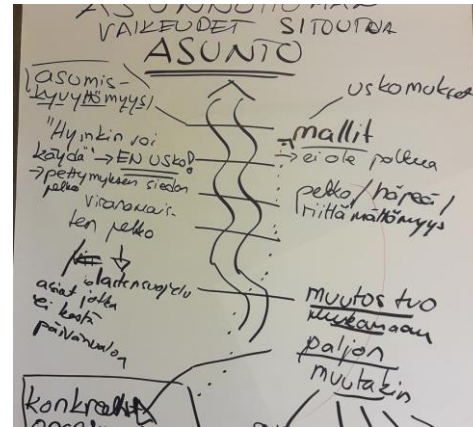 ASUNNOTTOMAN
VAIKEUDET SITOUTUA
ASUNTO
asumis-
kyvyttömyys
"Hyvinkin voi
käydä" → EN USKO!
→ pettymyksen siedon
pelko
viranomais-
ten pelko
lastensuojelu
asiat jotka
ei kestä
päivänvaloa
uskomukset
mallit
→ ei ole polkua
pelko / häpeä /
riittämättömyys
muutos tuo
mukanaan
paljon
muutakin